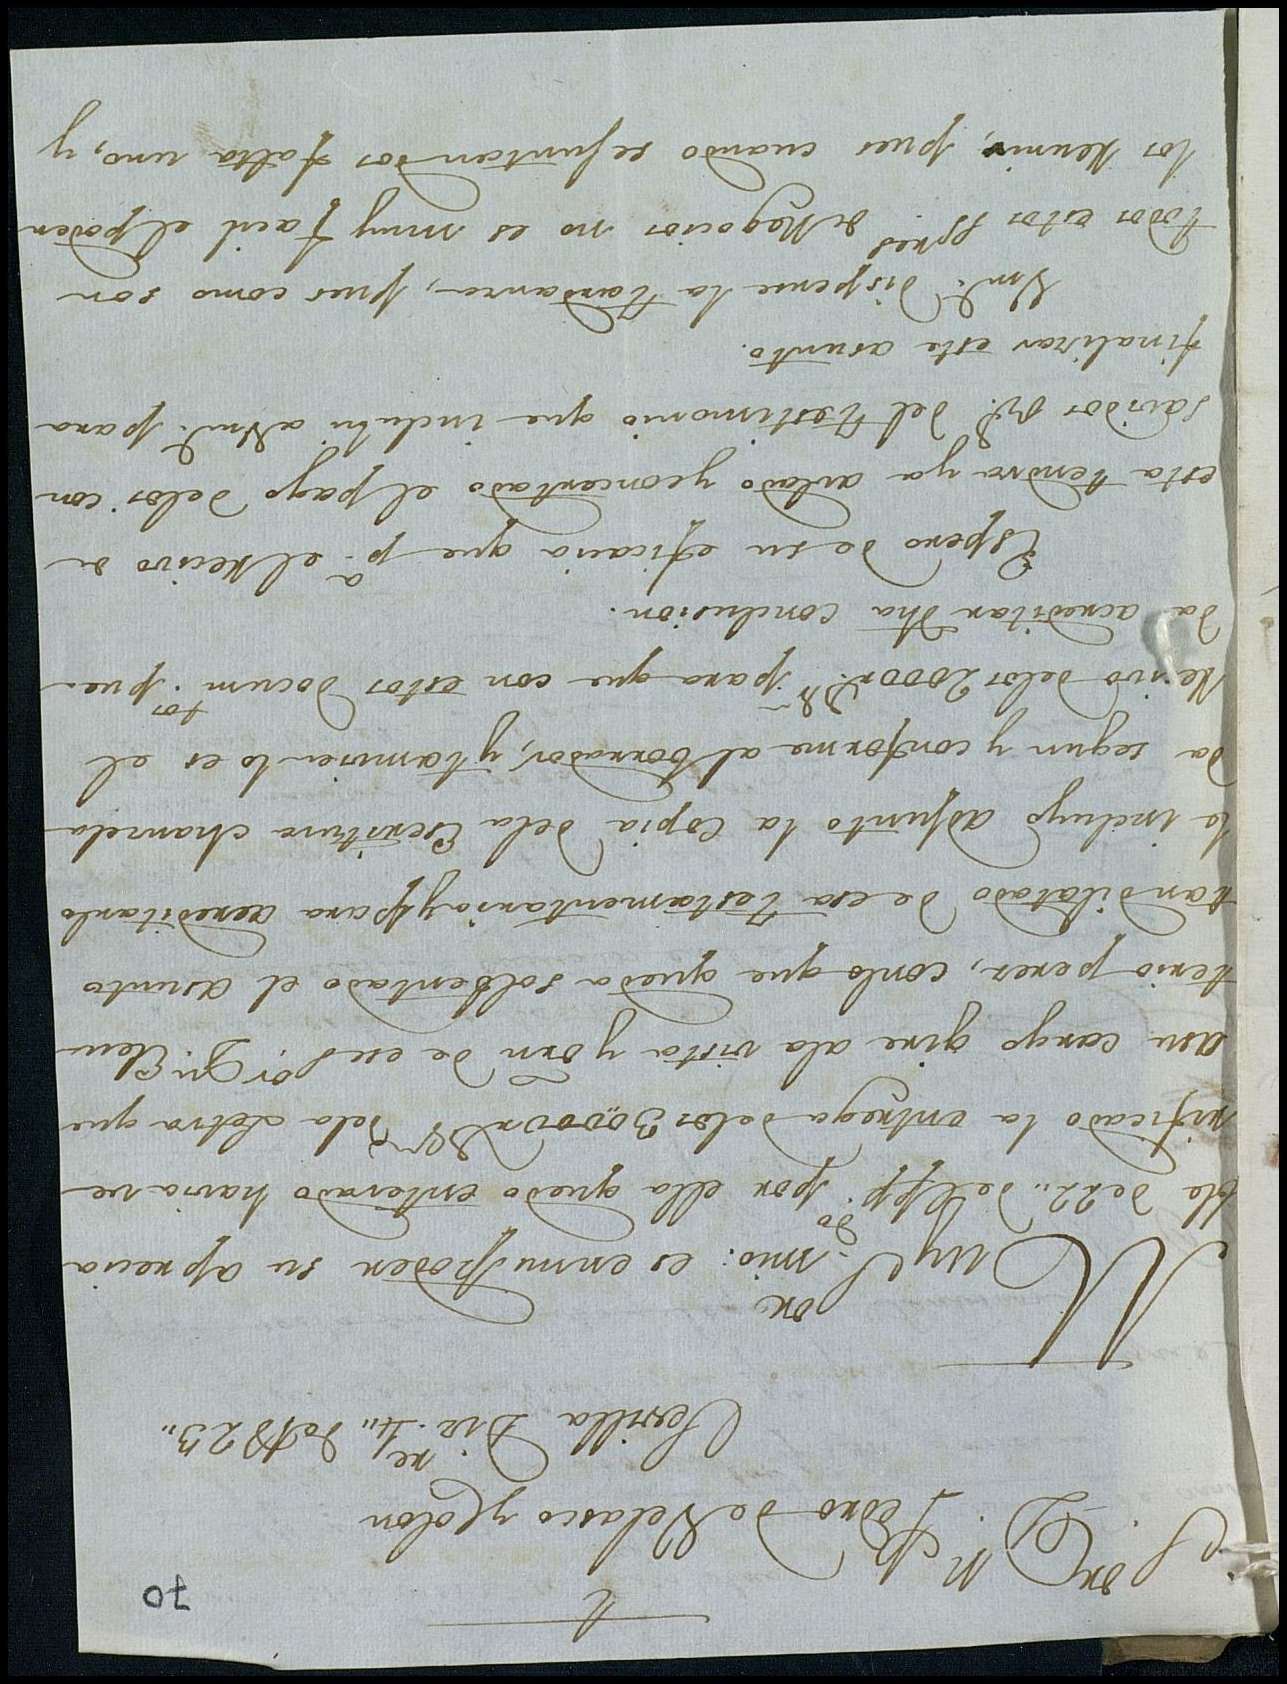 70
Sor. Dn. Pedro de Velasco y Colon
Sevilla Dizre. 4,, de 1823,,
Muy Sor. mio: es en mi poder su aprecia
ble de 22,, del pp.do por ella quedo enterado havia ve
rificado la entrega delos 30000 r.s Vn. dela Letra que
asu cargo gire ala vista y orn de ese Sor. Dn. Eleu
terio perez, conlo que queda solbentado el asunto
tan dilatado de esa Testamentaria; y para acreditarlo
le incluyo adjunto la Copia dela Escritura chancela
da segun y conforme al borrador, y tamvien lo es el
Recivo delos 2000 r.s Vn. para que con estos docum.tos pue
da acreditar dha conclusion.
Espero de su eficacia que p.a el Recivo de
esta tendra ya avlado y concertado el pago delos con
savidos dros. del Testimonio que inclui a Vmd. para
finalizar este asunto.
Vmd. dispense la tardanza, pues como son
todos estos Sres. de Negocios no es muy facil el poder
los Reunir, pues cuando se juntan dos falta uno, y